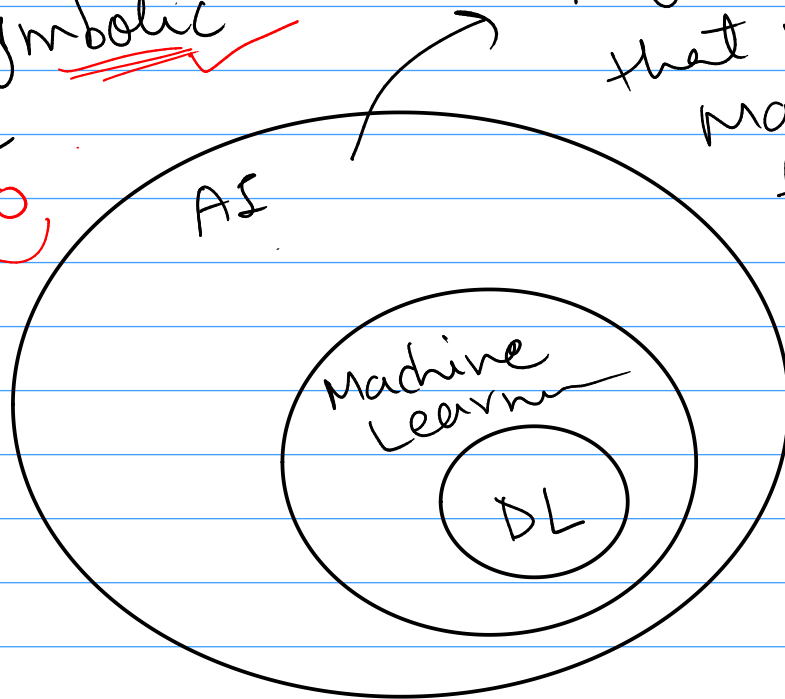 ymbolic
that
Ma
AI
Machine
Learn
DL